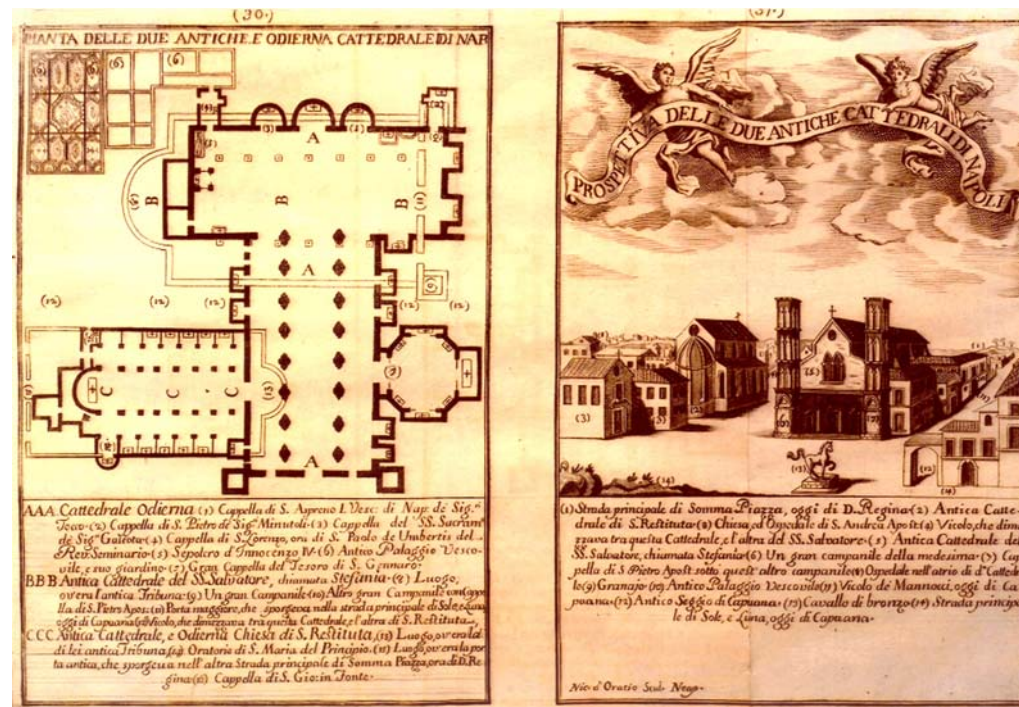 (30.)
PIANTA DELLE DUE ANTICHE, E ODIERNA CATTEDRALE DI NAP
AAA Cattedrale Odierna (1) Cappella di S. Aspreno I. Vesc: di Nap: de Sig.ri
Tocco (2) Cappella di S. Pietro de Sig.ri Minutoli (3) Cappella del SS. Sacram.
de Sig.ri Galeota (4) Cappella di S. Lorenzo, ora di S. Paolo de Umbertis del
Rev. Seminario (5) Sepolcro d'Innocenzo IV. (6) Antico Palaggio Vesco-
vile, e suo giardino (7) Gran Cappella del Tesoro di S. Gennaro.
BBB Antica Cattedrale del SS. Salvatore, chiamata Stefania (8) Luogo,
ov'era l'antica Tribuna (9) Un gran Campanile (10) Altro gran Campanile con cappel
la di S. Pietro Apos: (11) Porta maggiore, che sporgeva nella strada principale di Sole, e Luna,
oggi di Capuana Vicolo, che dimezzava tra questa Cattedrale, e l'altra di S. Restituta.
CCC Antica Cattedrale, e Odierna Chiesa di S. Restituta, (13) Luogo, ov'era la
di lei antica Tribuna (14) Oratorio di S. Maria del Principio. (15) Luogo, ov'era la por
ta antica, che sporgeva nell'altra Strada principale di Somma Piazza, ora di D. Re
gina (16) Cappella di S. Gio: in Fonte.
(31.)
PROSPETTIVA DELLE DUE ANTICHE CATTEDRALI DI NAPOLI
(1) Strada principale di Somma Piazza, oggi di D. Regina (2) Antica Catte-
drale di S. Restituta (3) Chiesa, ed Ospedale di S. Andrea Apost: (4) Vicolo, che dime
zzava tra questa Cattedrale, e l'altra del SS. Salvatore (5) Antica Cattedrale del
SS. Salvatore, chiamata Stefania (6) Un gran campanile della medesima (7) Cap
pella di S. Pietro Apost: sotto quest'altro campanile (8) Ospedale nell'atrio di d.a Cattedra
le (9) Granajo (10) Antico Palaggio Vescovile (11) Vicolo de Mannocci, oggi di Ca
puana (12) Antico Seggio di Capuana (13) Cavallo di bronzo (14) Strada principa
le di Sole, e Luna, oggi di Capuana.
Nic. d'Oratio Scul. Neap.